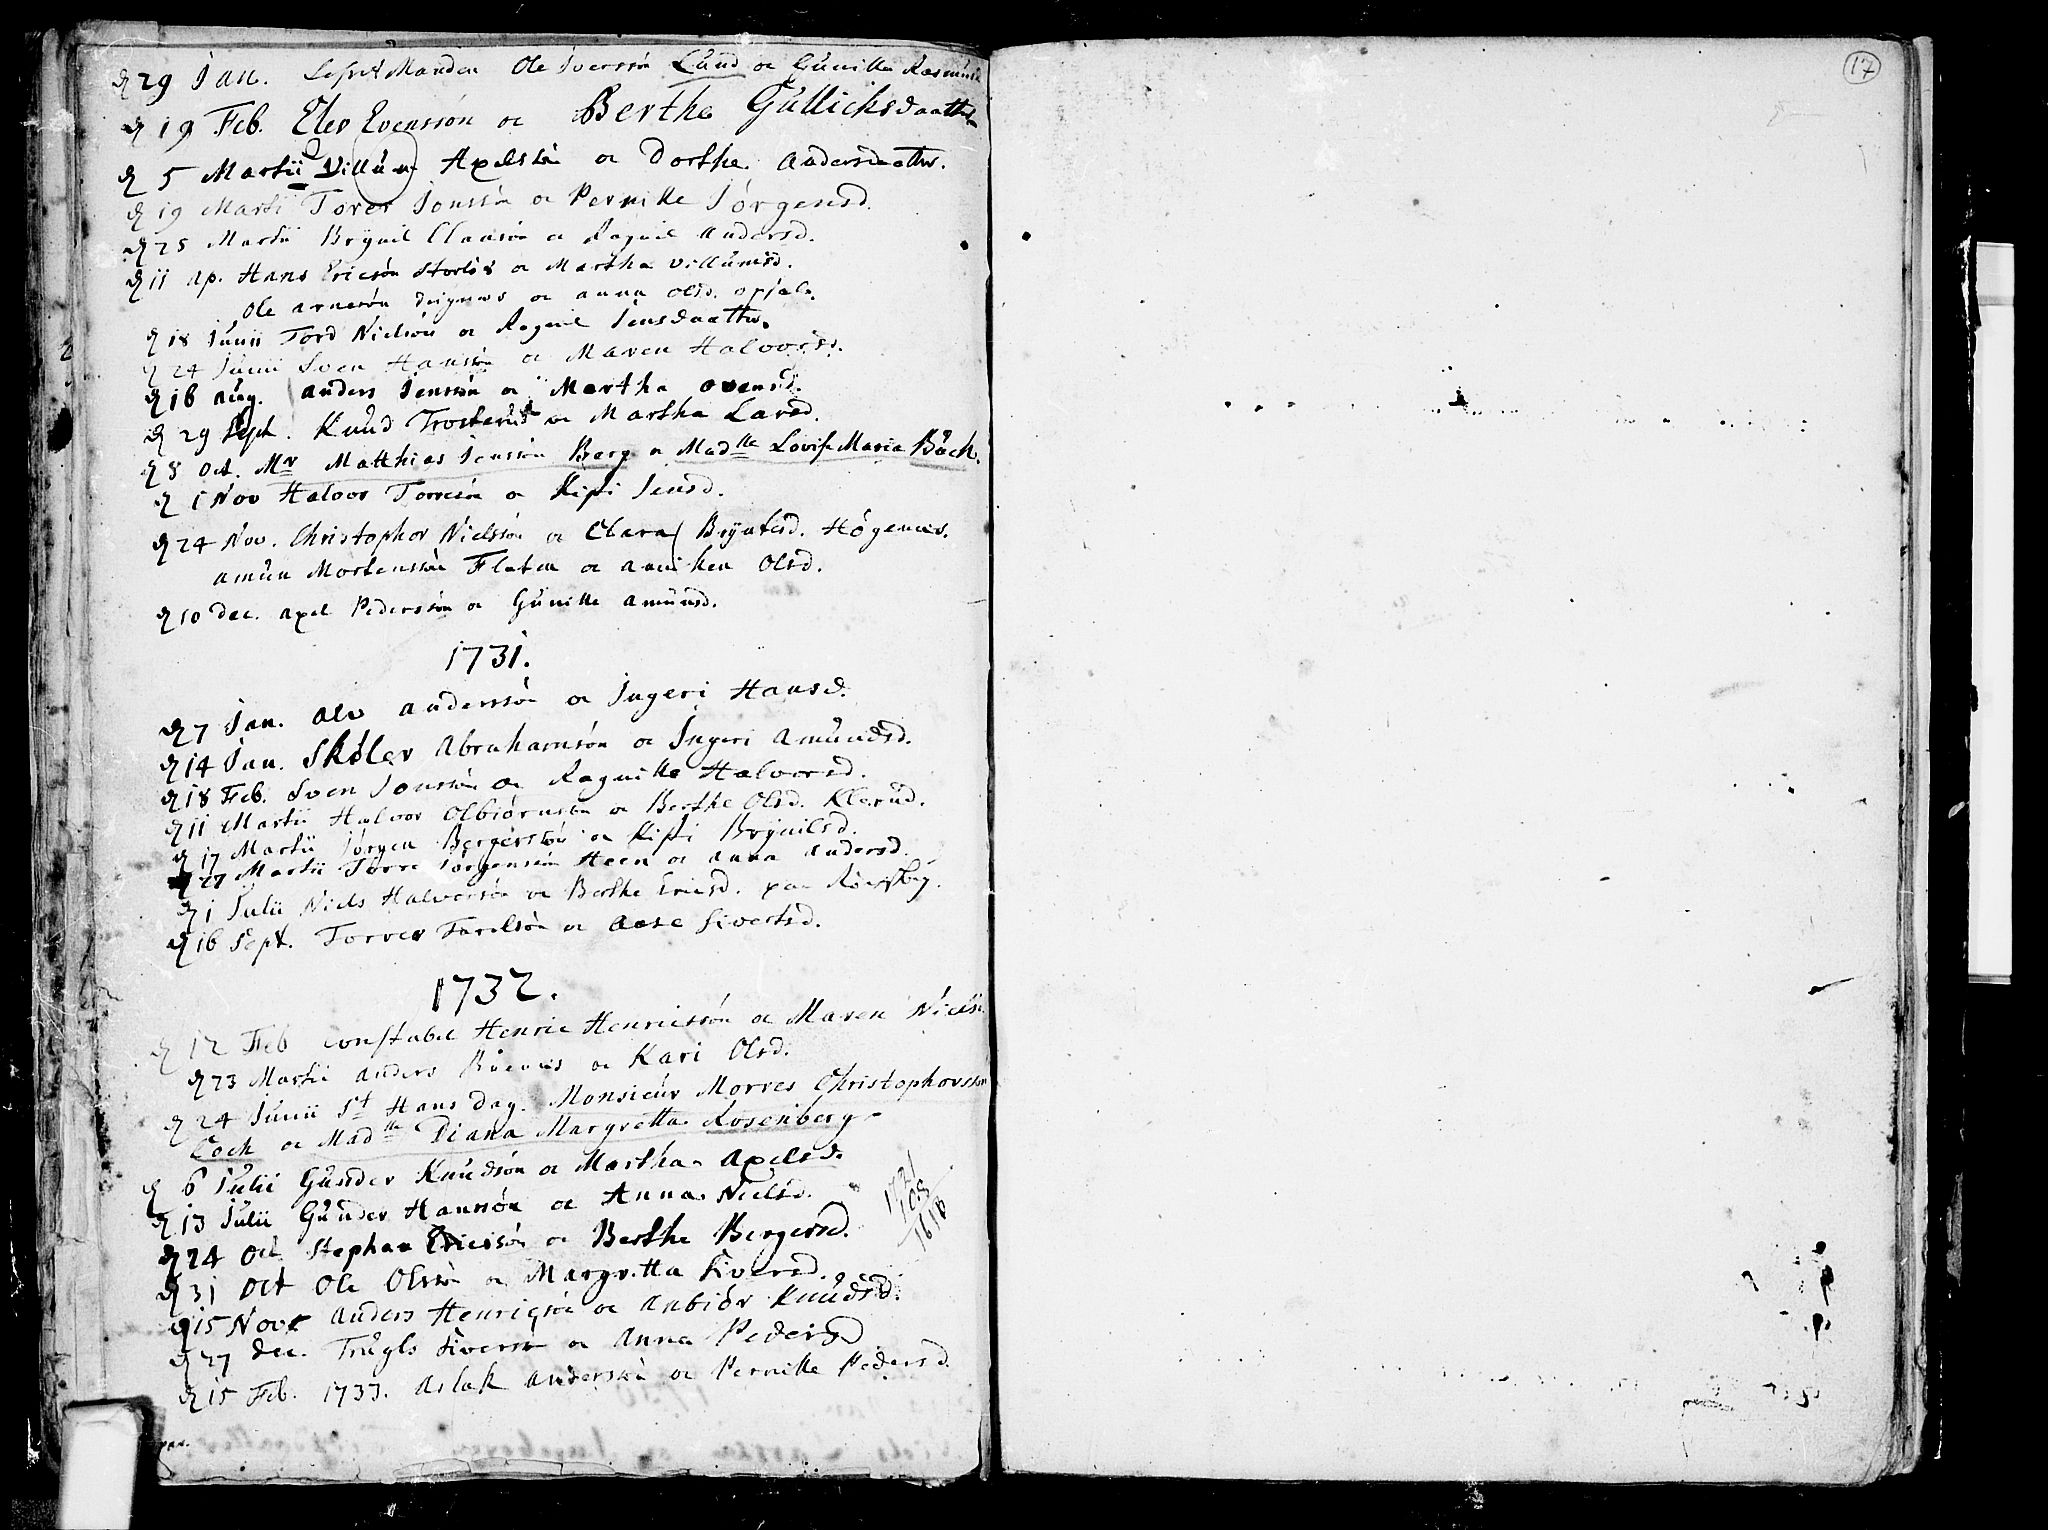 29 Jan. Manden Ole Iverssön Lund oc Gunille Rasmusd
19 Feb. Elev Evenssön oc Berthe Gullichsdaatter
5 Martii Villum Axelssön oc Dorthe Andersdaatter.
19 Marti Torer Jonssön oc Pernille Jörgensd.
25 Martii Brÿnil Clausön oc Ragnil Andersd.
11 Ap. Hans Ericsön oc Martha Villumsd.
Ole Arnesön oc Anna Olsd.
18 Junii Tord Nielsön oc Ragnil Jensdaatter.
24 Junii Sven Hanssön oc Maren Halvorsd.
16 Aug. Anders Jenssön oc Martha Ovensd.
29 Sept. Knud Trosterud oc Martha Larsd.
8 Oct. Mr Matthias Jenssön Berg oc Madlle Lovise Maria Bäch.
1 Nov Halvor Torresön oc Kisti Jensd.
24 Nov. Christophor Nielssön oc Clara Brÿnilsd.
Amun Mortenssön Flaten oc Anniken Olsd.
10 Dec. Axel Pederssön oc Gunille Amunsd.
1731.
7 Jan. Alv Anderssön oc Ingeri Hansd.
14 Jan. Skölev Abrahamsön oc Ingeri Amundsd.
18 Feb. Sven Jonssön oc Ragnille Halvorsd.
11 Martii Halvor Olbiörnsön oc Berthe Olsd. Klerud.
17 Martii Jörgen Bergerssön oc Kisti Brÿnilsd.
27 Martii Torre Jörgenssön Heen oc Anna Andersd.
1 Julii Niels Halvorsön oc Berthe Ericsd. paa
16 Sept. Torver oc Aase Sivertsd.
1732.
12 Feb Constabel Henric Henricssön oc Maren Nielsd
23 Martii Anders oc Kari Olsd.
24 Junii St Hans Dag. Monsieur Morres Christophorssön
Coch oc Madlle Diana Margretta Rosenberg
6 Julii Gunder Knudsön oc Martha Axelsd.
13 Julii Gunder Hanssön oc Anna Nielsd.
24 Oct Stephan Ericssön oc Berthe Bergersd.
31 Oct Ole Olssön oc Margretta Siversd.
15 Nov Anders Henricsön oc Anbiör Knudsd.
27 Dec. Trugls Siverssön oc Anna Pedersd
15 Feb. 1733. Aslak Anderssön oc Pernille Pedersd.
1721
108
1618
17